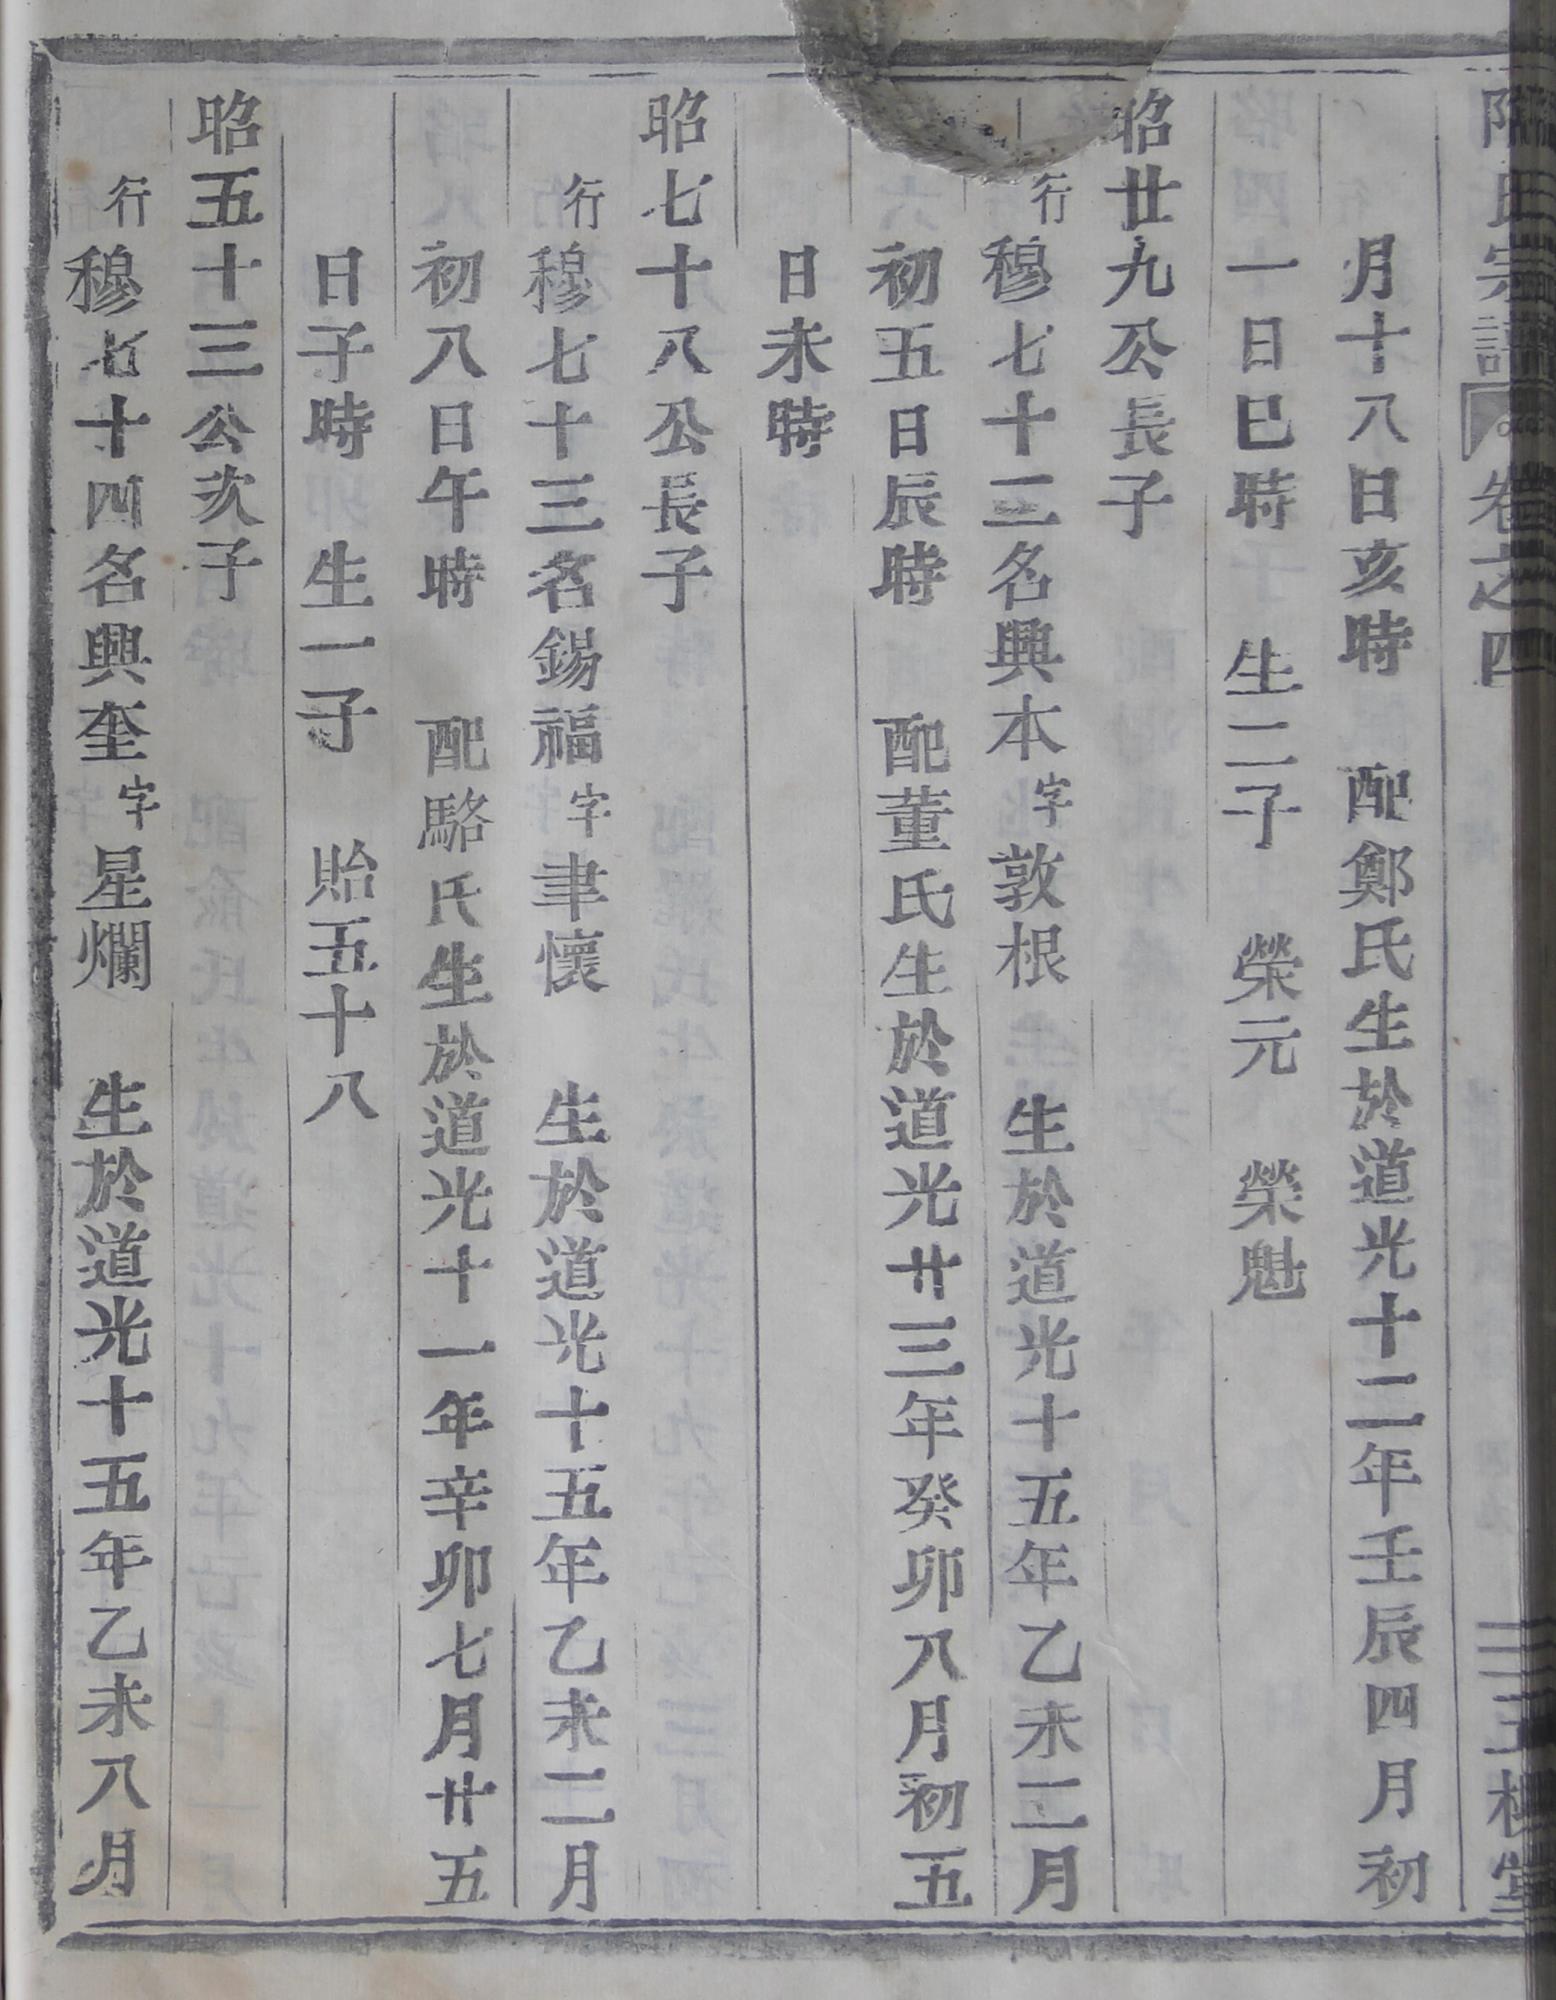 氏宗譜 卷之四 三槐堂
月十八日亥時 配鄭氏生於道光十二年壬辰四月初
一日巳時 生二子 榮元 榮魁
昭廿九公長子
行穆七十二名興本字敦根 生於道光十五年乙未二月
初五日辰時 配董氏生於道光廿三年癸卯八月初五
日未時
昭七十八公長子
行穆七十三名錫福字聿懷 生於道光十五年乙未二月
初八日午時 配駱氏生於道光十一年辛卯七月廿五
日子時 生一子 貽五十八
昭五十三公次子
行穆七十四名興奎字星爛 生於道光十五年乙未八月